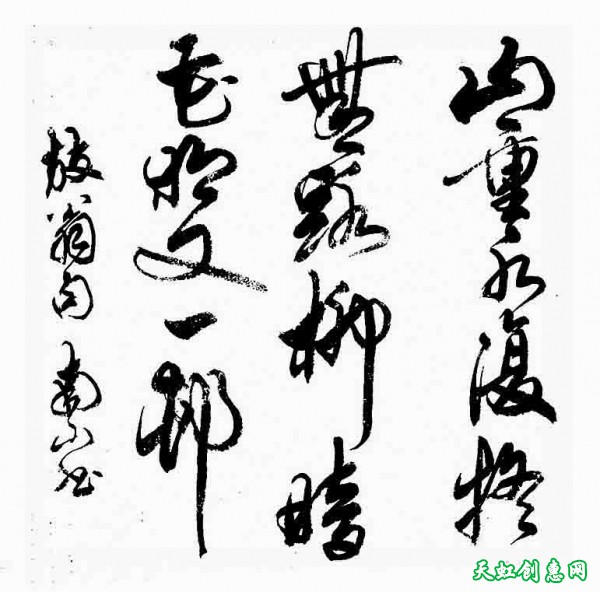 山重水復疑
無路柳暗
花明又一邨
放翁句 南山书
天虹创惠网